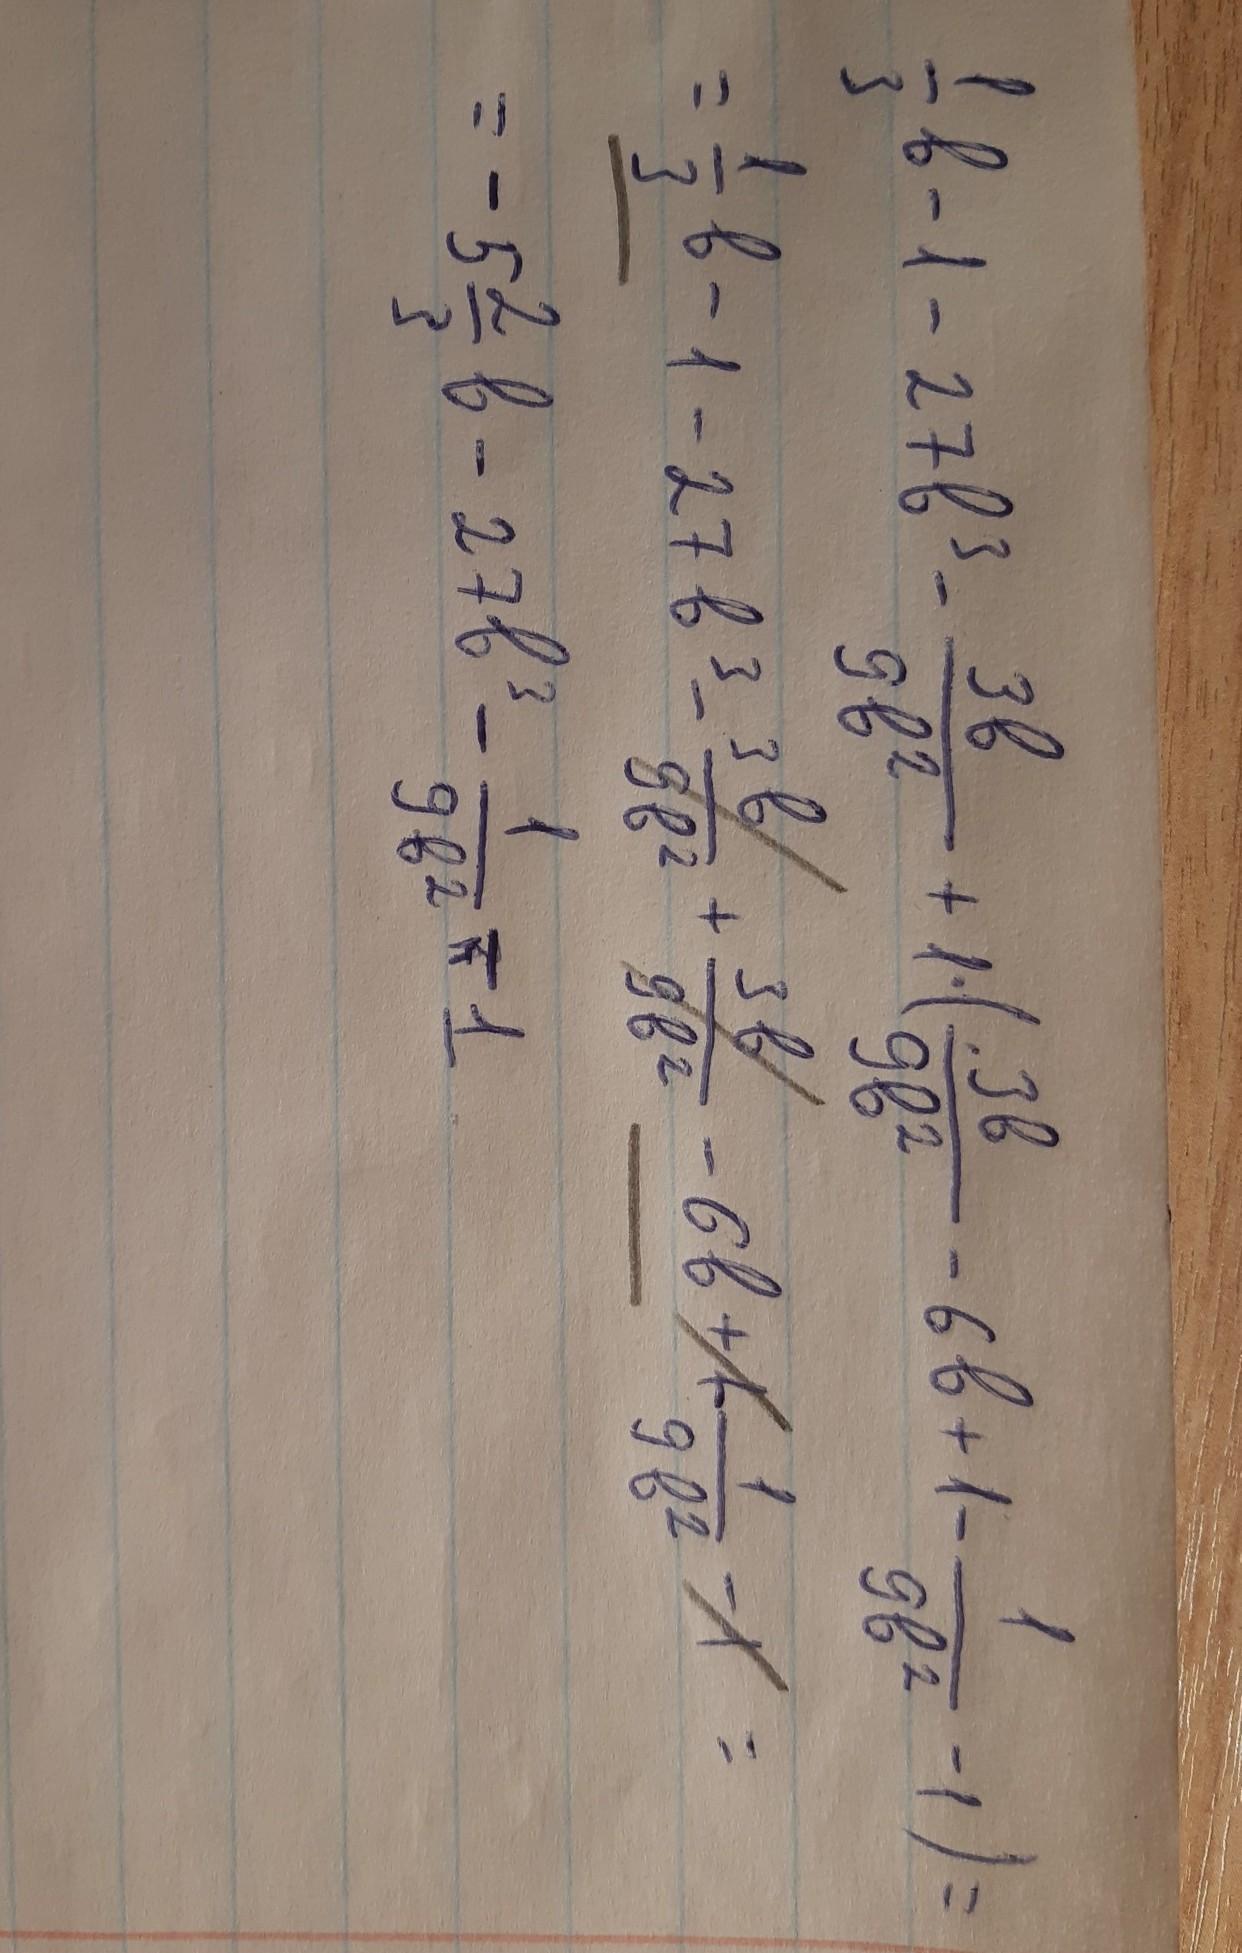 1/3 b - 1 - 27b³ - 3b/9b² + 1·(3b/9b² - 6b + 1 - 1/9b² - 1) =
= 1/3 b - 1 - 27b³ - 3b/9b² + 3b/9b² - 6b + 1 - 1/9b² - 1 =
= - 5 2/3 b - 27b³ - 1/9b² - 1